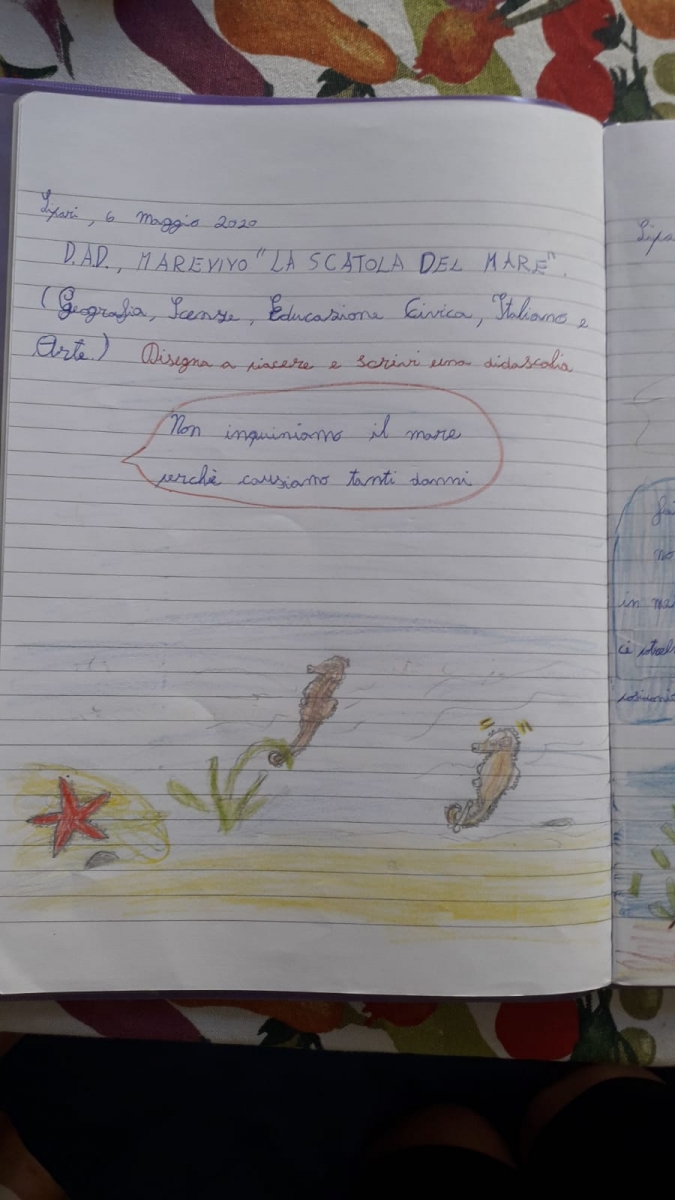 Lipari, 6 Maggio 2020
D.AD., MAREVIVO "LA SCATOLA DEL MARE".
(Geografia, Scenze, Educazione Civica, Italiano e
Arte.) Disegna a piacere e scrivi una didascalia
Non inquiniamo il mare
perchè causiamo tanti danni
Lipa
no
in me